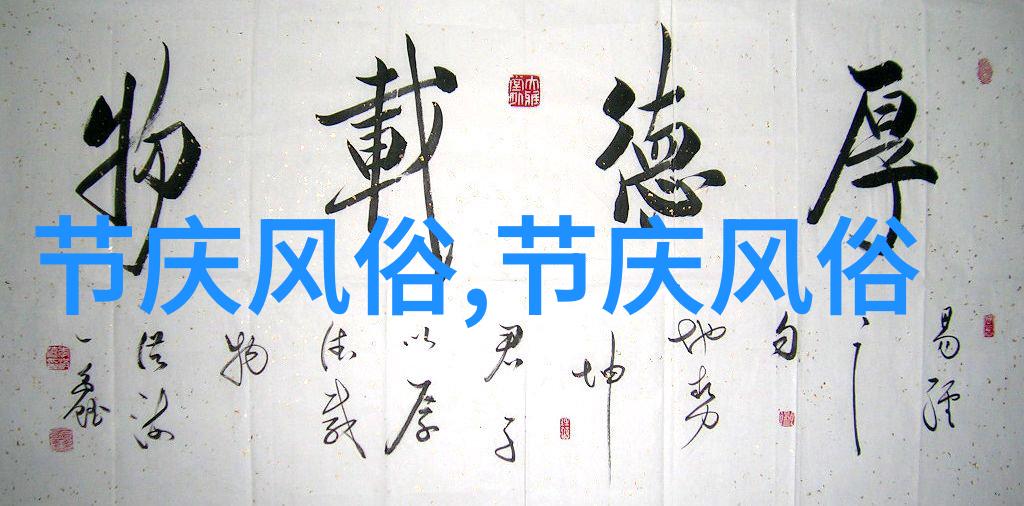 厚德載物
节庆风俗,节庆风俗
易經
之
句
地勢
坤
君子
以厚
德載
物